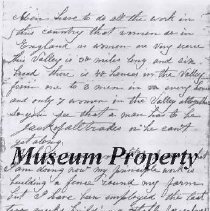 have to do all the work in
this country that women do in
England as women are very scarce
this Valley is 50 miles long and six
broad there is 40 houses in the Valley
from one to 3 men in every house
and only 7 women in the Valley altogether
so you see that a man has to be
Jack of all trades or he can't
get along.
Museum Property
I am doing now my principle work is
building a fence round my farm
but I have been employed the last